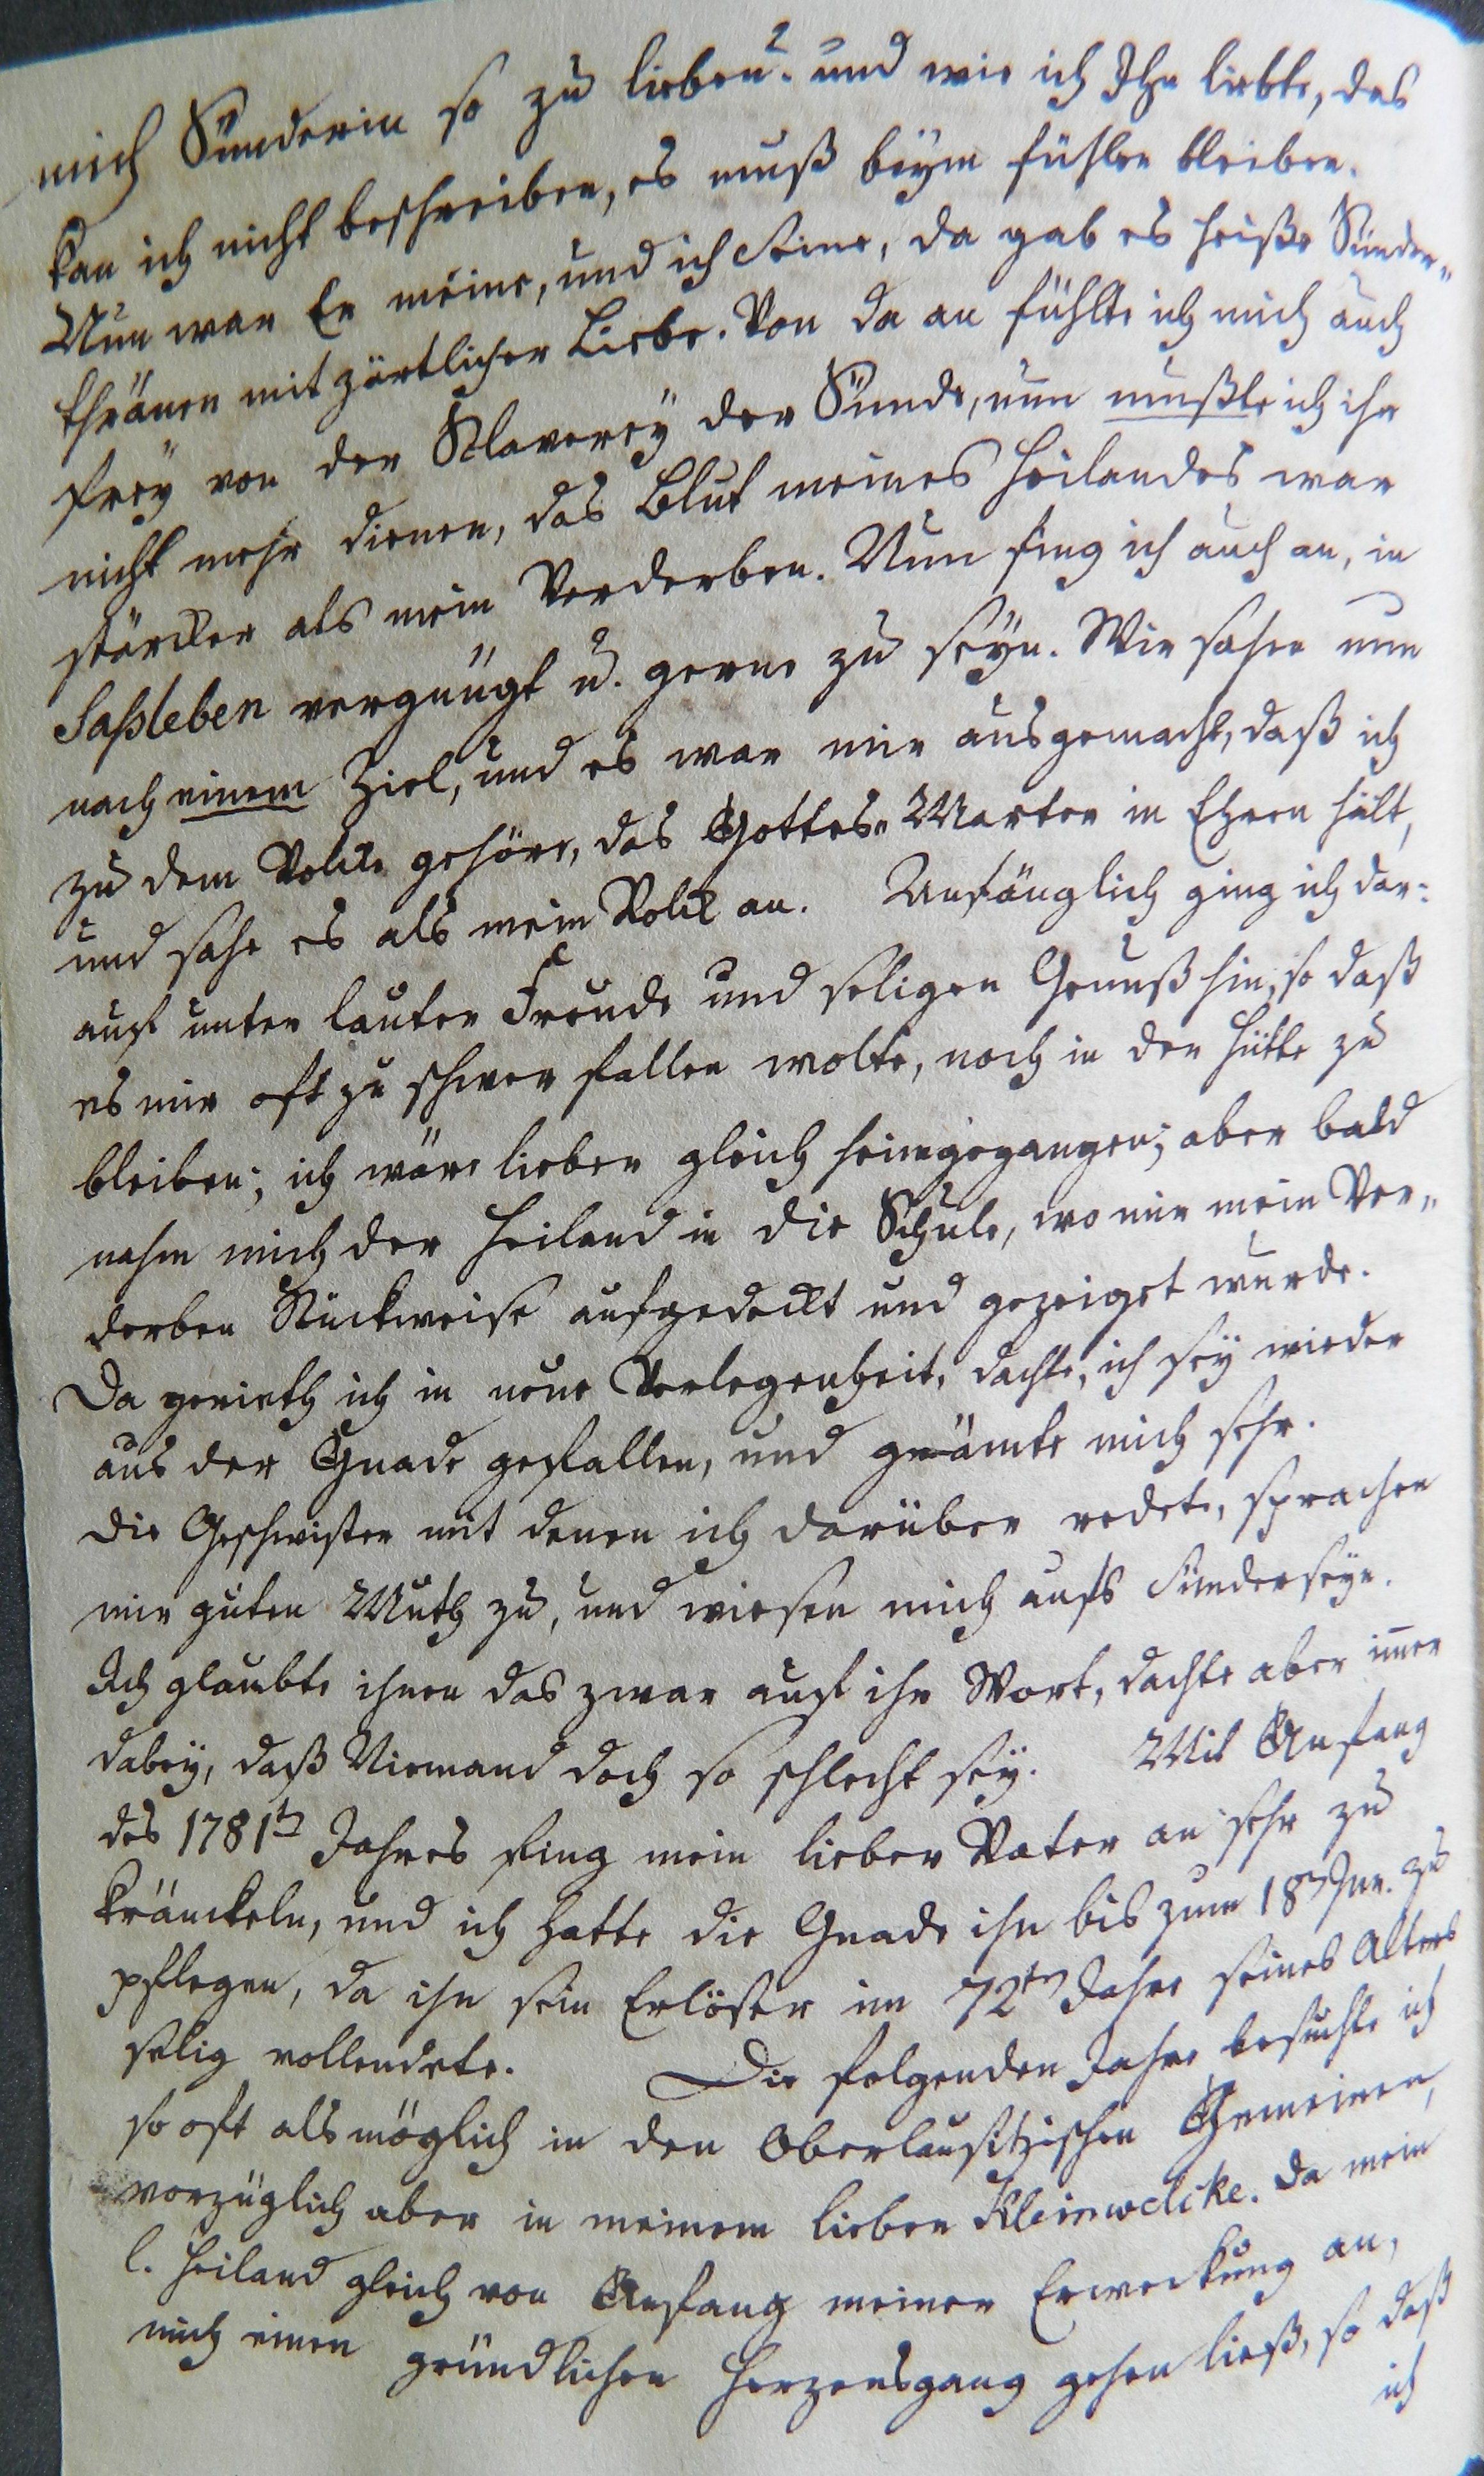 mich Sünderin so zu lieben? und wie ich Ihn liebte, das
kan ich nicht beschreiben, es muß beym fühlen bleiben.
Nun war Er meine, und ich Seine, da gab es heiße Sünder„
thränen mit zärtlicher Liebe. Von da an fühlte ich mich auch
frey von der Sklaverey der Sünde, nun mußte ich ihr
nicht mehr dienen, das Blut meines Heilandes war
stärcker als mein Verderben. Nun fing ich auch an, in
Saßleben vergnügt u. gerne zu seyn. Wir sahen nun
nach einem Ziel, und es war mir ausgemacht, daß ich
zu dem Volcke gehöre, das Gottes„Marter in Ehren hält,
und sahe es als mein Volck an. Anfänglich ging ich dar:
auf unter lauter Freude und seligen Genuß hin, so daß
es mir oft zu schwer fallen wolte, noch in der Hütte zu
bleiben; ich wäre lieber gleich heimgegangen; aber bald
nahm mich der Heiland in die Schule, wo mir mein Ver„
derben Stückweise aufgedeckt und gezeiget wurde.
Da gerieth ich in neue Verlegenheit, dachte, ich sey wieder
aus der Gnade gefallen, und grämte mich sehr.
Die Geschwister mit denen ich darüber redete, sprachen
mir guten Muth zu, und wiesen mich aufs Sünderseyn.
Ich glaubte ihnen das zwar auf ihr Wort, dachte aber im̅er
dabey, daß Niemand doch so schlecht sey. Mit Anfang
des 1781ten Jahres fing mein lieber Vater an sehr zu
kränckeln, und ich hatte die Gnade ihn bis zum 18ten Jan. zu
pflegen, da ihn sein Erlöser im 72ten Jahre seines Alters
selig vollendete. Die folgenden Jahre besuchte ich
so oft als möglich in den Oberlausitzischen Gemeinen,
vorzüglich aber in meinem lieben Kleinwelcke. Da mein
l. Heiland gleich von Anfang meiner Erweckung an,
mich einen gründlichen Herzensgang gehen ließ, so daß
ich